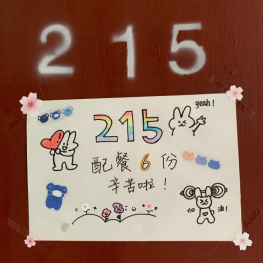 215
yeah!
215
配餐6份
辛苦啦!
加油!